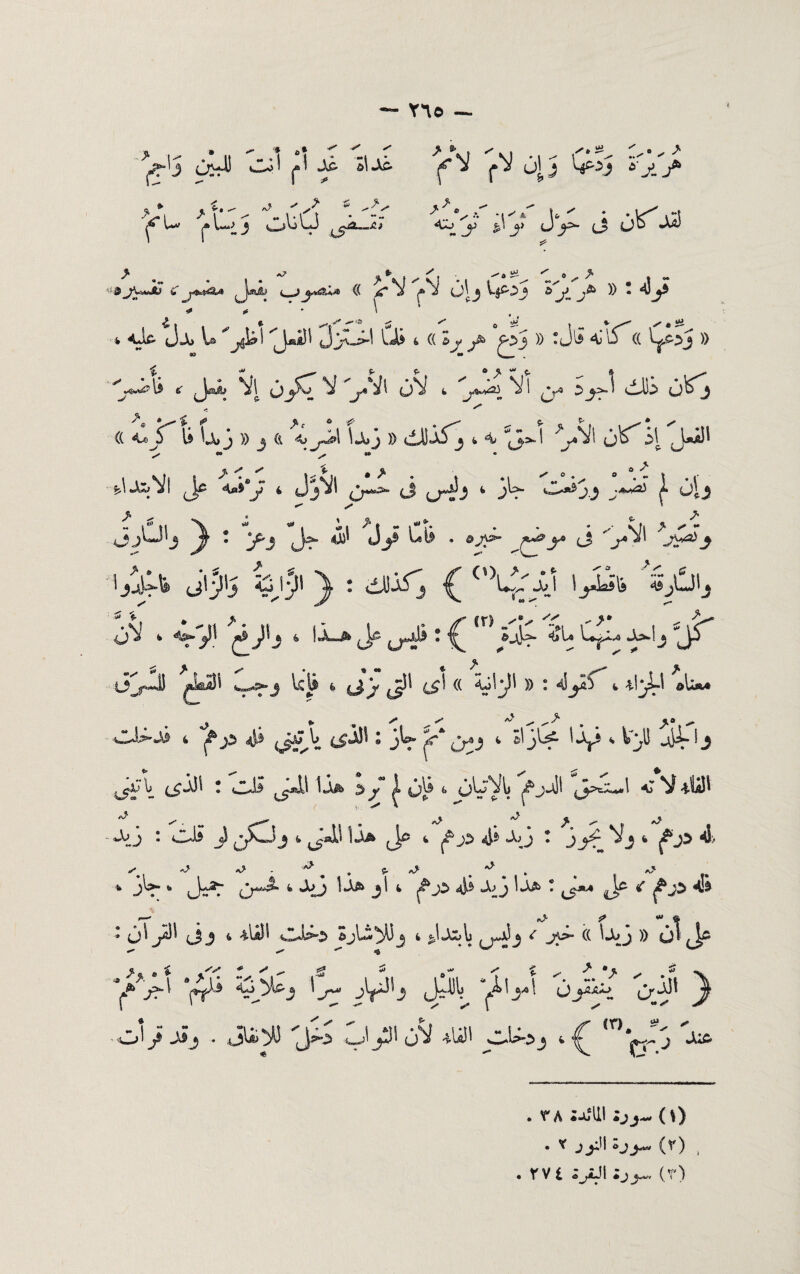 — ٢٦٥ —
هُرَيْرَةَ وَدِّعْهَا وَإِنْ لَامَ لَائِمُ غَدَاةَ غَدٍ أَمْ أَنْتَ لِلْبَيْنِ وَاجِمُ
لَقَدْ كَانَ فِي حَوْلٍ ثَوَاءٍ ثَوَيْتُهُ تَقَضِّي لُبَانَاتٍ وَيَسْأَمُ سَائِمُ
قوله : « هُرَيْرَةَ وَدِّعْهَا وَإِنْ لَامَ لَائِمُ » منصوب بفعل مضمر ، تفسيره
« وَدِّعْهَا » كأنه قال: « وَدِّعْ هريرةَ » ، فلما اختزلَ الفعلَ أظهرَ ما يدلُّ عليه ،
وكان ذلك أجودَ من ألَّا يُضْمِرَ ، لأن الأمرَ لا يكون إلّا بفعل ، فأضمر
الفعلَ إذْ كان الأمرُ أحقَّ به ، وكذلك « زيدًا اضْرِبْهُ » و « زيدًا فأكْرِمْهُ »
وإن لم تُضْمِرْ ورفعتَ جاز ، وليس في حسن الأولِ ، ترفعُه على الابتداء
وتُصَيِّرُ الأمرَ في موضع خبره . فأما قولُ الله جلَّ وعزَّ : ﴿ وَالسَّارِقُ
وَالسَّارِقَةُ فَاقْطَعُوا أَيْدِيَهُمَا ﴾(١) وكذلك : ﴿ الزَّانِيَةُ وَالزَّانِي فَاجْلِدُوا
كُلَّ وَاحِدٍ مِنْهُمَا مِائَةَ جَلْدَةٍ ﴾(٢) : فليس على هذا ، والرفعُ الوجهُ ، لأنَّ
معناه الجزاءُ ، كقوله : « الزانيةُ » أي التي تزني ، فإنما وجب القطعُ للسَّرَقِ
والجلدُ للزنا ، فهذا مجازاةٌ ، ومن ثَمَّ جاز : الذي يأتيني فله درهمٌ ، فدخلت
الفاء لأنه استحقَّ الدرهمَ بالإتيان ، فإن لم تُرِدْ هذا المعنى قلتَ : الذي يأتيني
له درهمٌ ، ولا يجوز : زيدٌ فله درهمٌ ، على هذا المعنى ، ولكن لو قلتَ : زيدٌ
فله درهمٌ ، على معنى : هذا زيدٌ فله درهمٌ ، أو هذا زيدٌ ، فحسنٌ جميلٌ ، جاز ،
على أن « زيدًا » خبرٌ ، وليس بابتداء ، وللإشارة دخلت الفاء ، وفي القرآن :
﴿ الَّذِينَ يُنْفِقُونَ أَمْوَالَهُمْ بِاللَّيْلِ وَالنَّهَارِ سِرًّا وَعَلَانِيَةً فَلَهُمْ أَجْرُهُمْ
عِنْدَ رَبِّهِمْ(٣) ﴾ ، ودخلت الفاء لأن الثوابَ دخلَ للإنفاق . وقد قرأت
(١) سورة المائدة ٣٨ .
(٢) سورة النور ٢ .
(٣) سورة البقرة ٢٧٤ .